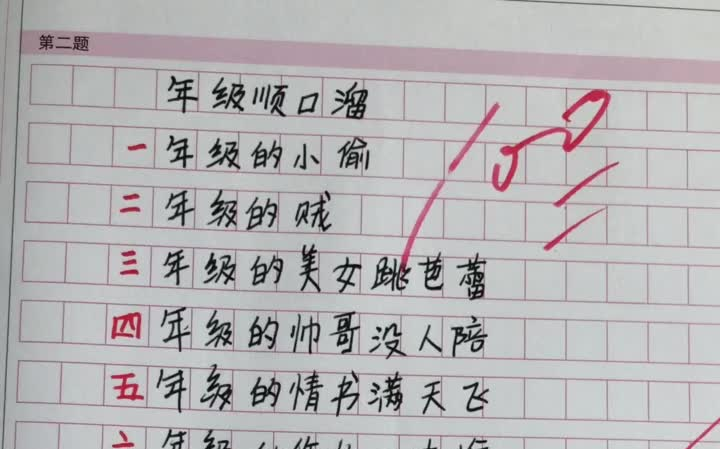 第二题
年级顺口溜
一年级的小偷
二年级的贼
三年级的美女跳芭蕾
四年级的帅哥没人陪
五年级的情书满天飞
六年级